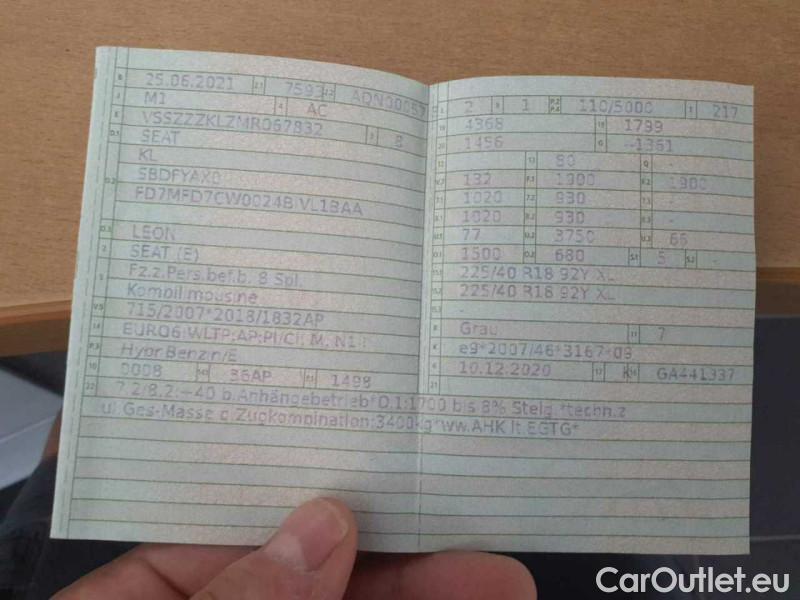 B 25.06.2021 2.1 7593 2.2
J M1 4 AC
E VSSZZZKLZMR067832 3 8
D.1 SEAT
D.2 KL
SBDFYAX0
FD7MFD7CW0024B VL1BAA
D.3 LEON
2 SEAT (E)
5 Fz.z.Pers.bef.b. 8 Spl.
Kombilimousine
V.9 715/2007*2018/1832AP
14 EURO6;WLTP;AP;PI/CI; M, N1 I
P.3 Hybr.Benzin/E
10 0008 14.1 36AP P.1 1498
22 7.2/8.2:+40 b.Anhängebetrieb*O.1:1700 bis 8% Steig.*techn.z
ul.Ges-Masse d.Zugkombination:3400kg*ww.AHK lt.EGTG*
L 2 9 1 P.2 P.4 110/5000 T 217
18 4368 19 1799
20 1456 G -1361
12 - 13 80 Q -
V.7 132 F.1 1900 F.2 1900
7.1 1020 7.2 930 7.3 -
8.1 1020 8.2 930 8.3 -
U.1 77 U.2 3750 U.3 66
O.1 1500 O.2 680 S.1 5 S.2 -
15.1 225/40 R18 92Y XL
15.2 225/40 R18 92Y XL
15.3 -
R Grau 11 7
K e9*2007/46*3167*09
6 10.12.2020 17 K 16 GA441337
21
CarOutlet.eu